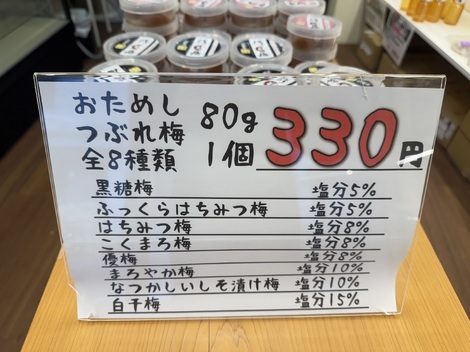 おためし
つぶれ梅
全8種類
80g
1個
330円
黒糖梅 塩分5%
ふっくらはちみつ梅 塩分5%
はちみつ梅 塩分8%
こくまろ梅 塩分8%
優梅 塩分8%
まろやか梅 塩分10%
なつかしいしそ漬け梅 塩分10%
白干梅 塩分15%